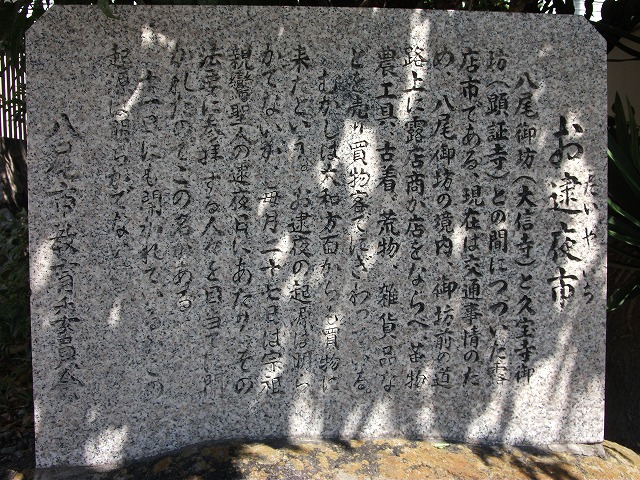 お逮夜市
たいやいち
八尾御坊（大信寺）と久宝寺御
坊（顕証寺）との間につづいた露
店市である。現在は交通事情のた
め、八尾御坊の境内、御坊前の道
路上に露店商が店をならべ、苗物
農工具、古着、荒物、雑貨品な
どを売り買物客でにぎわっている。
むかしは大和方面からも買物に
来たという。お逮夜の起源は明ら
かでないが、毎月二十七日は宗祖
親鸞聖人の逮夜日にあたり、その
法要に参拝する人々を目当てに開
かれたのでこの名がある
十一日にも開かれているがこの
起源は明らかでない
八尾市教育委員会